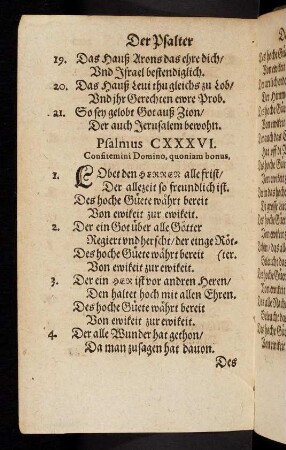 Der Psalter
19. Das Hauß Arons das ehre dich/
Vnd Israel bestendiglich.
20. Das Hauß Leui thu gleichs zu Lob/
Vnd ihr Gerechten ewre Prob.
21. So sey gelobt Got auß Zion/
Der auch Jerusalem bewohn.
Psalmus CXXXVI.
Confitemini Domino, quoniam bonus.
1. LObet den HERREN alle frist/
Der allezeit so freundlich ist.
Des hoche Güete währt bereit
Von ewikeit zur ewikeit.
2. Der ein Got über alle Götter
Regiert vnd herscht/ der einge Röt-
Des hoche Güete währt bereit (ter.
Von ewikeit zur ewikeit.
3. Der ein HER ist vor andren Heren/
Den haltet hoch mit allen Ehren.
Des hoche Güete währt bereit
Von ewikeit zur ewikeit.
4. Der alle Wunder hat gethon/
Da man zusagen hat dauon.
Des